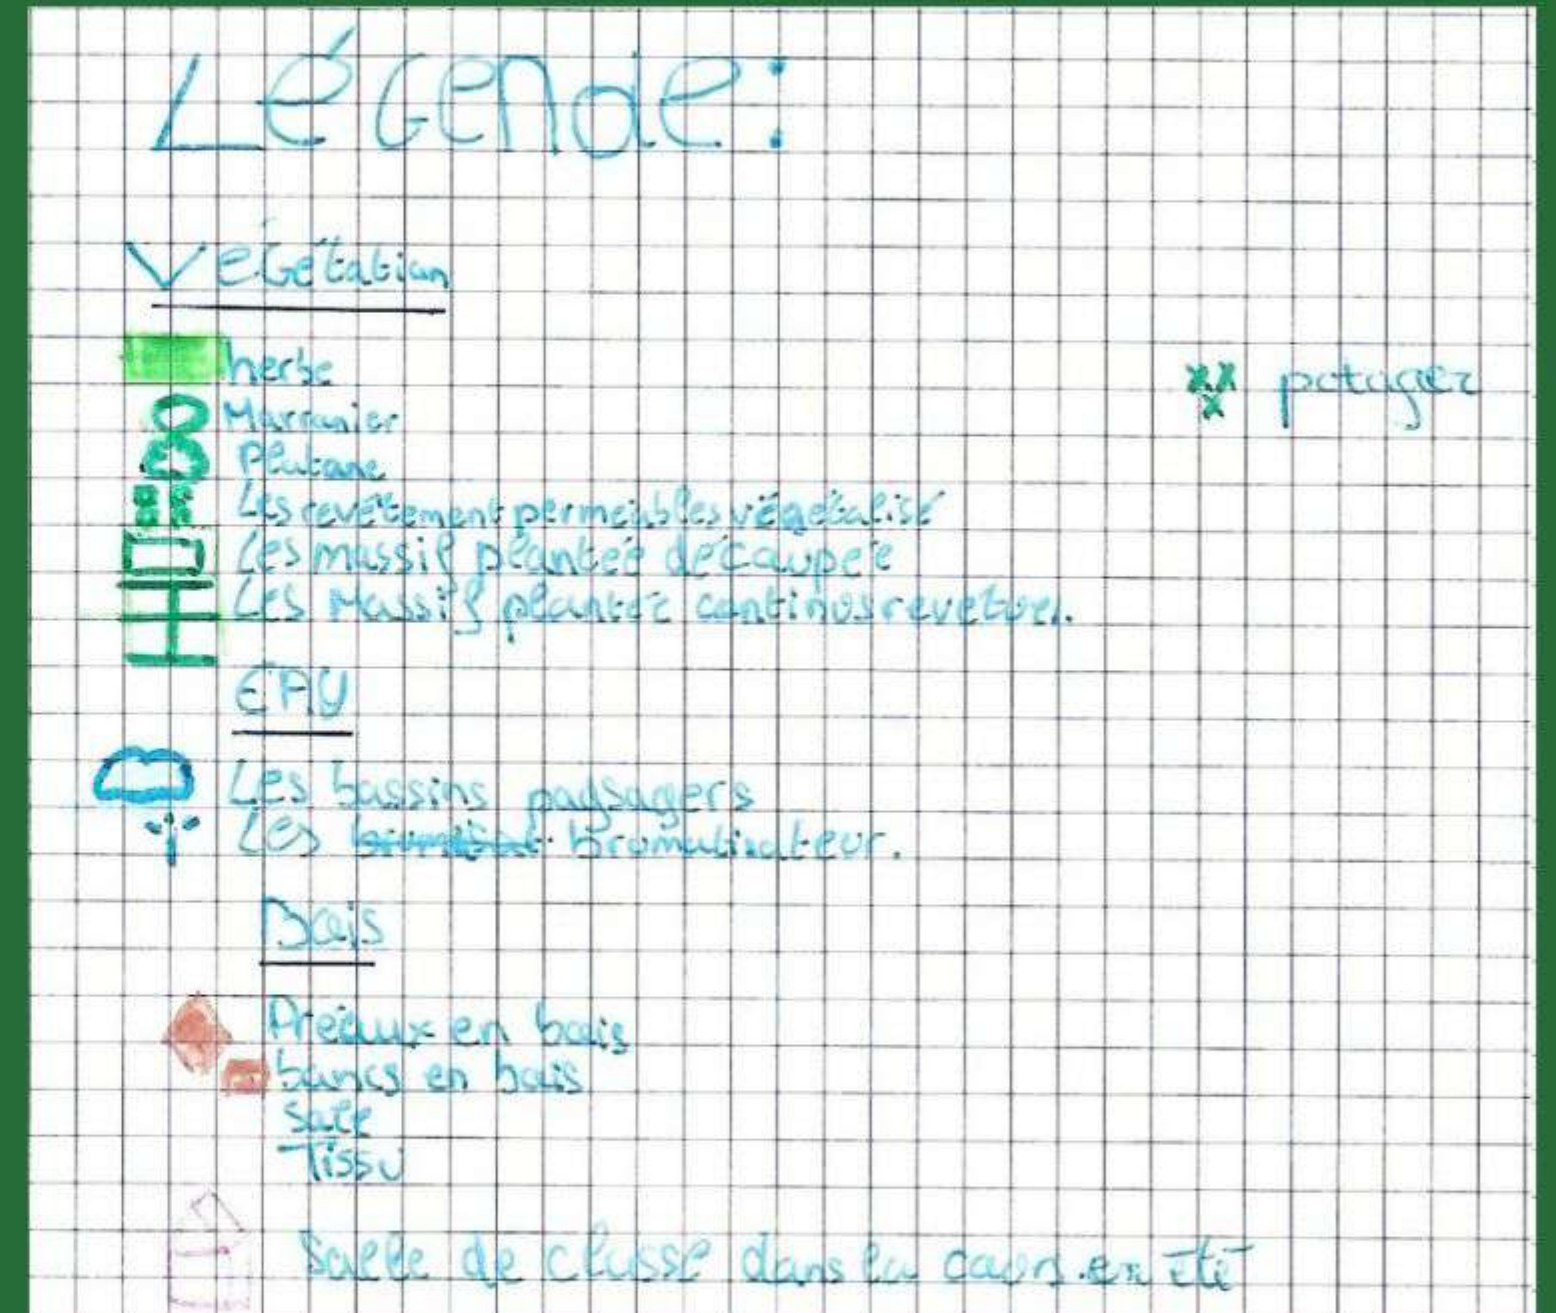 Légende :
Végétation
herbe
Marronier
Platane
Les revêtement permeables végétalisé
Les massif plantée découpée
Les Massif plantée continus
potager
EAU
Les bassins paysagers
Les bromatisateur.
Bois
Préaux en bois
bancs en bois
Tissu
Salle de classe dans la cours en été